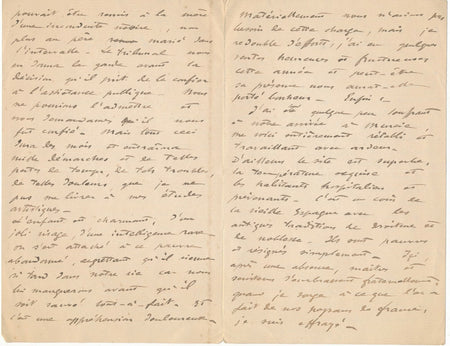 pouvait être remis à la mère
d'une inconduite notoire, non
plus au père remarié dans
l'intervalle - Le Tribunal nous
en donna la garde avant la
décision qu'il prit de le confier
à l'assistance publique. Nous
ne pouvions l'admettre et
nous demandâmes qu'il nous
fut confié - Mais tout ceci
dura des mois et entraîna
mille démarches et de telles
pertes de temps, de tels troubles,
de telles douleurs, que je ne
pus me livrer à mes études
artistiques -
L'enfant est charmant, d'un
joli visage, d'une intelligence rare -
on s'est attaché à ce pauvre
abandonné, regrettant qu'il vienne
si tard dans notre vie car nous
lui manquerons avant qu'il
soit sauvé tout-à-fait. Et
c'est une appréhension douloureuse -
Matériellement nous n'avions pas
besoin de cette charge, mais je
redouble d'efforts, j'ai eu quelques
ventes heureuses et fructueuses
cette année et peut-être
sa présence nous aura-t-elle
porté bonheur - Enfin !
J'ai été quelque peu souffrant
à notre arrivée à
me voici entièrement rétabli et
travaillant avec ardeur.
D'ailleurs le site est superbe,
la température exquise et
les habitants hospitaliers et
prévenants - C'est un coin de
la vieille Espagne avec les
antiques traditions de droiture et
de noblesse - Ils sont pauvres
et résignés simplement - Ici
après une absence, maîtres et
serviteurs s'embrassent fraternellement,
quand je songe à ce que l'on a
fait de nos paysans de France,
je suis effrayé -